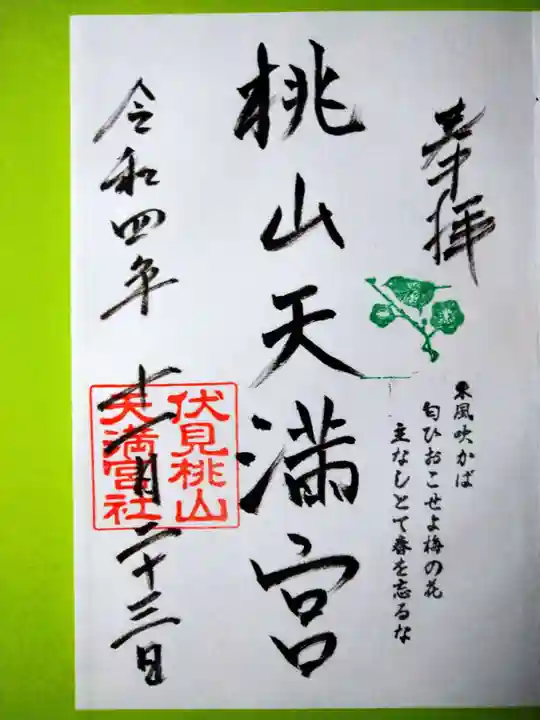 奉拝
東風吹かば
匂ひおこせよ梅の花
主なしとて春を忘るな
桃山天満宮
令和四年十一月二十三日
伏見桃山
天満宮社